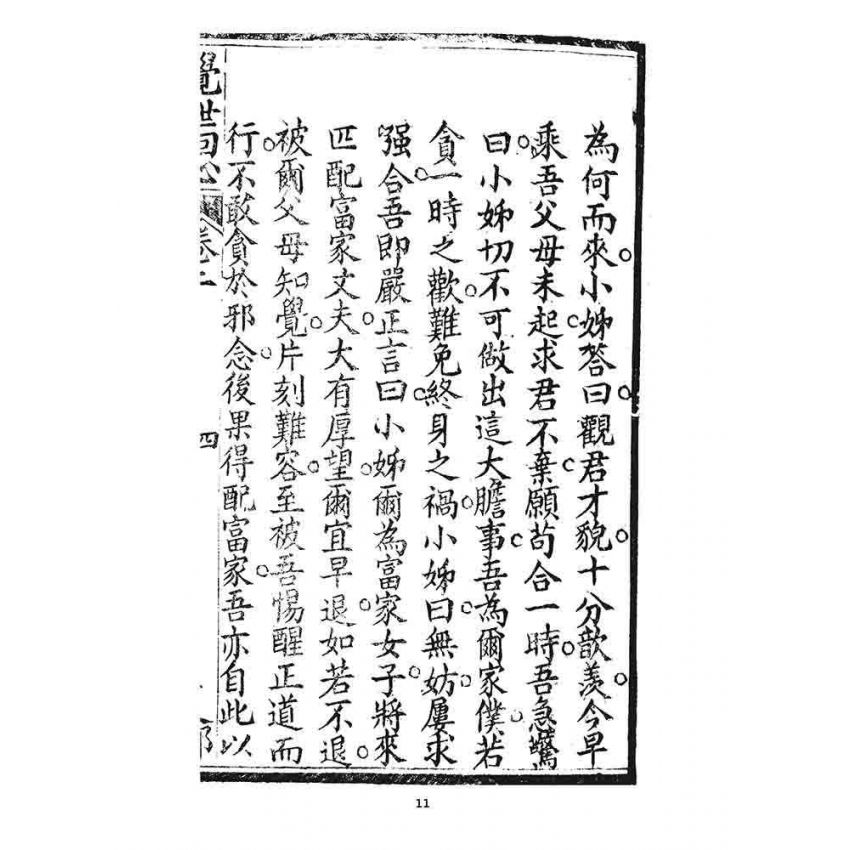 為何而來。小姊答曰。觀君才貌。十分歆羨。今早
乘吾父母未起。求君不棄。願苟合一時。吾急驚
曰。小姊切不可做出這大膽事。吾為爾家僕。若
貪一時之歡。難免終身之禍。小姊曰。無妨。屢求
强合。吾即嚴正言曰。小姊爾為富家女子。將來
匹配富家丈夫。大有厚望。爾宜早退。如若不退。
被爾父母知覺。片刻難容。至被吾惕醒正道而
行。不敢貪於邪念。後果得配富家。吾亦自此以
覺世回心 卷二 四
11